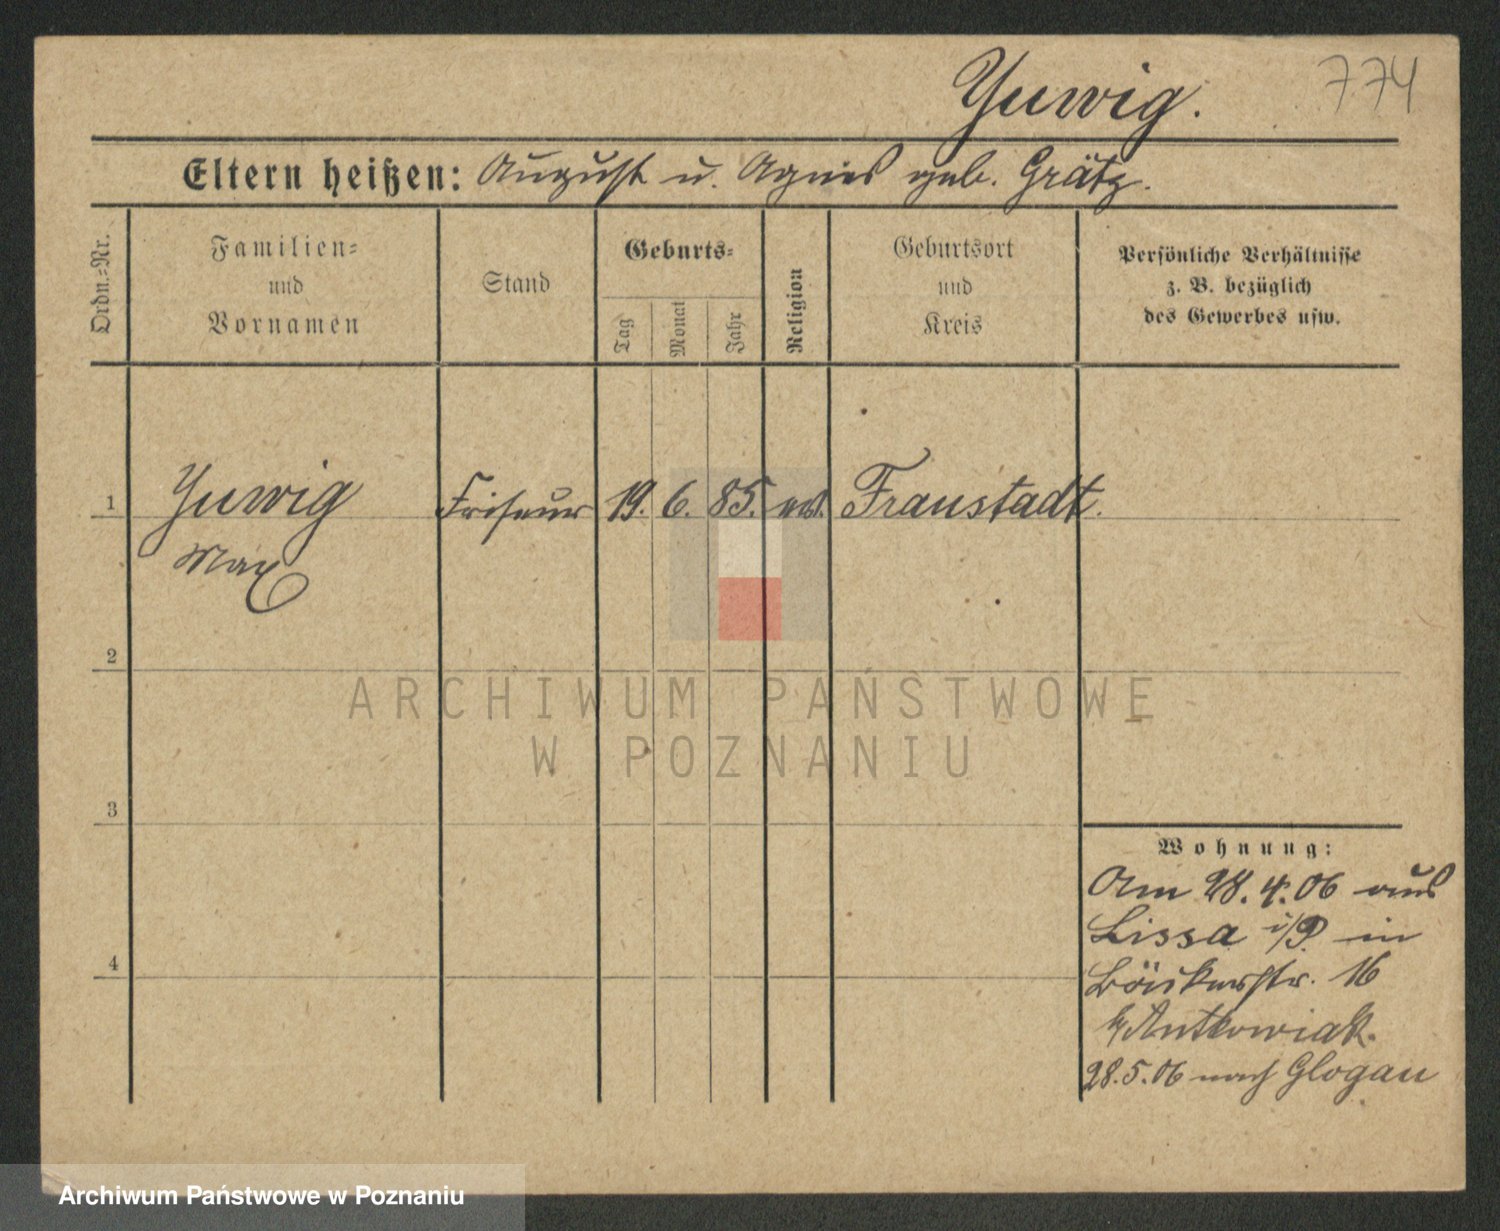 Yuwig. 774
Eltern heißen: August u. Agnes geb. Grätz.
Ordn.-Nr.
Familien-
und
Vornamen
Stand
Geburts-
Tag
Monat
Jahr
Religion
Geburtsort
und
Kreis
Persönliche Verhältnisse
z. B. bezüglich
des Gewerbes usw.
1 Yuwig Friseur 19. 6. 85. Fraustadt.
Max
2
ARCHIWUM PAŃSTWOWE
W POZNANIU
3
Wohnung:
Am 28.4.06 aus
Lissa i/P in
Bäckerstr. 16
b/Antkowiak.
4
28.5.06 nach Glogau
Archiwum Państwowe w Poznaniu